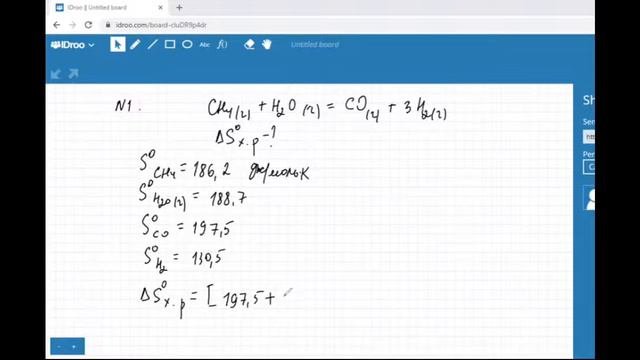 IDroo || Untitled board
idroo.com/board-cluDR9p4dr
IDroo
Abc
f()
Untitled board
N1.
CH4(г) + H2O (г) = CO(г) + 3H2(г)
ΔS⁰х.р - ?
S⁰CH4 = 186,2 Дж/моль·К
S⁰H2O(г) = 188,7
S⁰CO = 197,5
S⁰H2 = 130,5
ΔS⁰х.р = [ 197,5 +